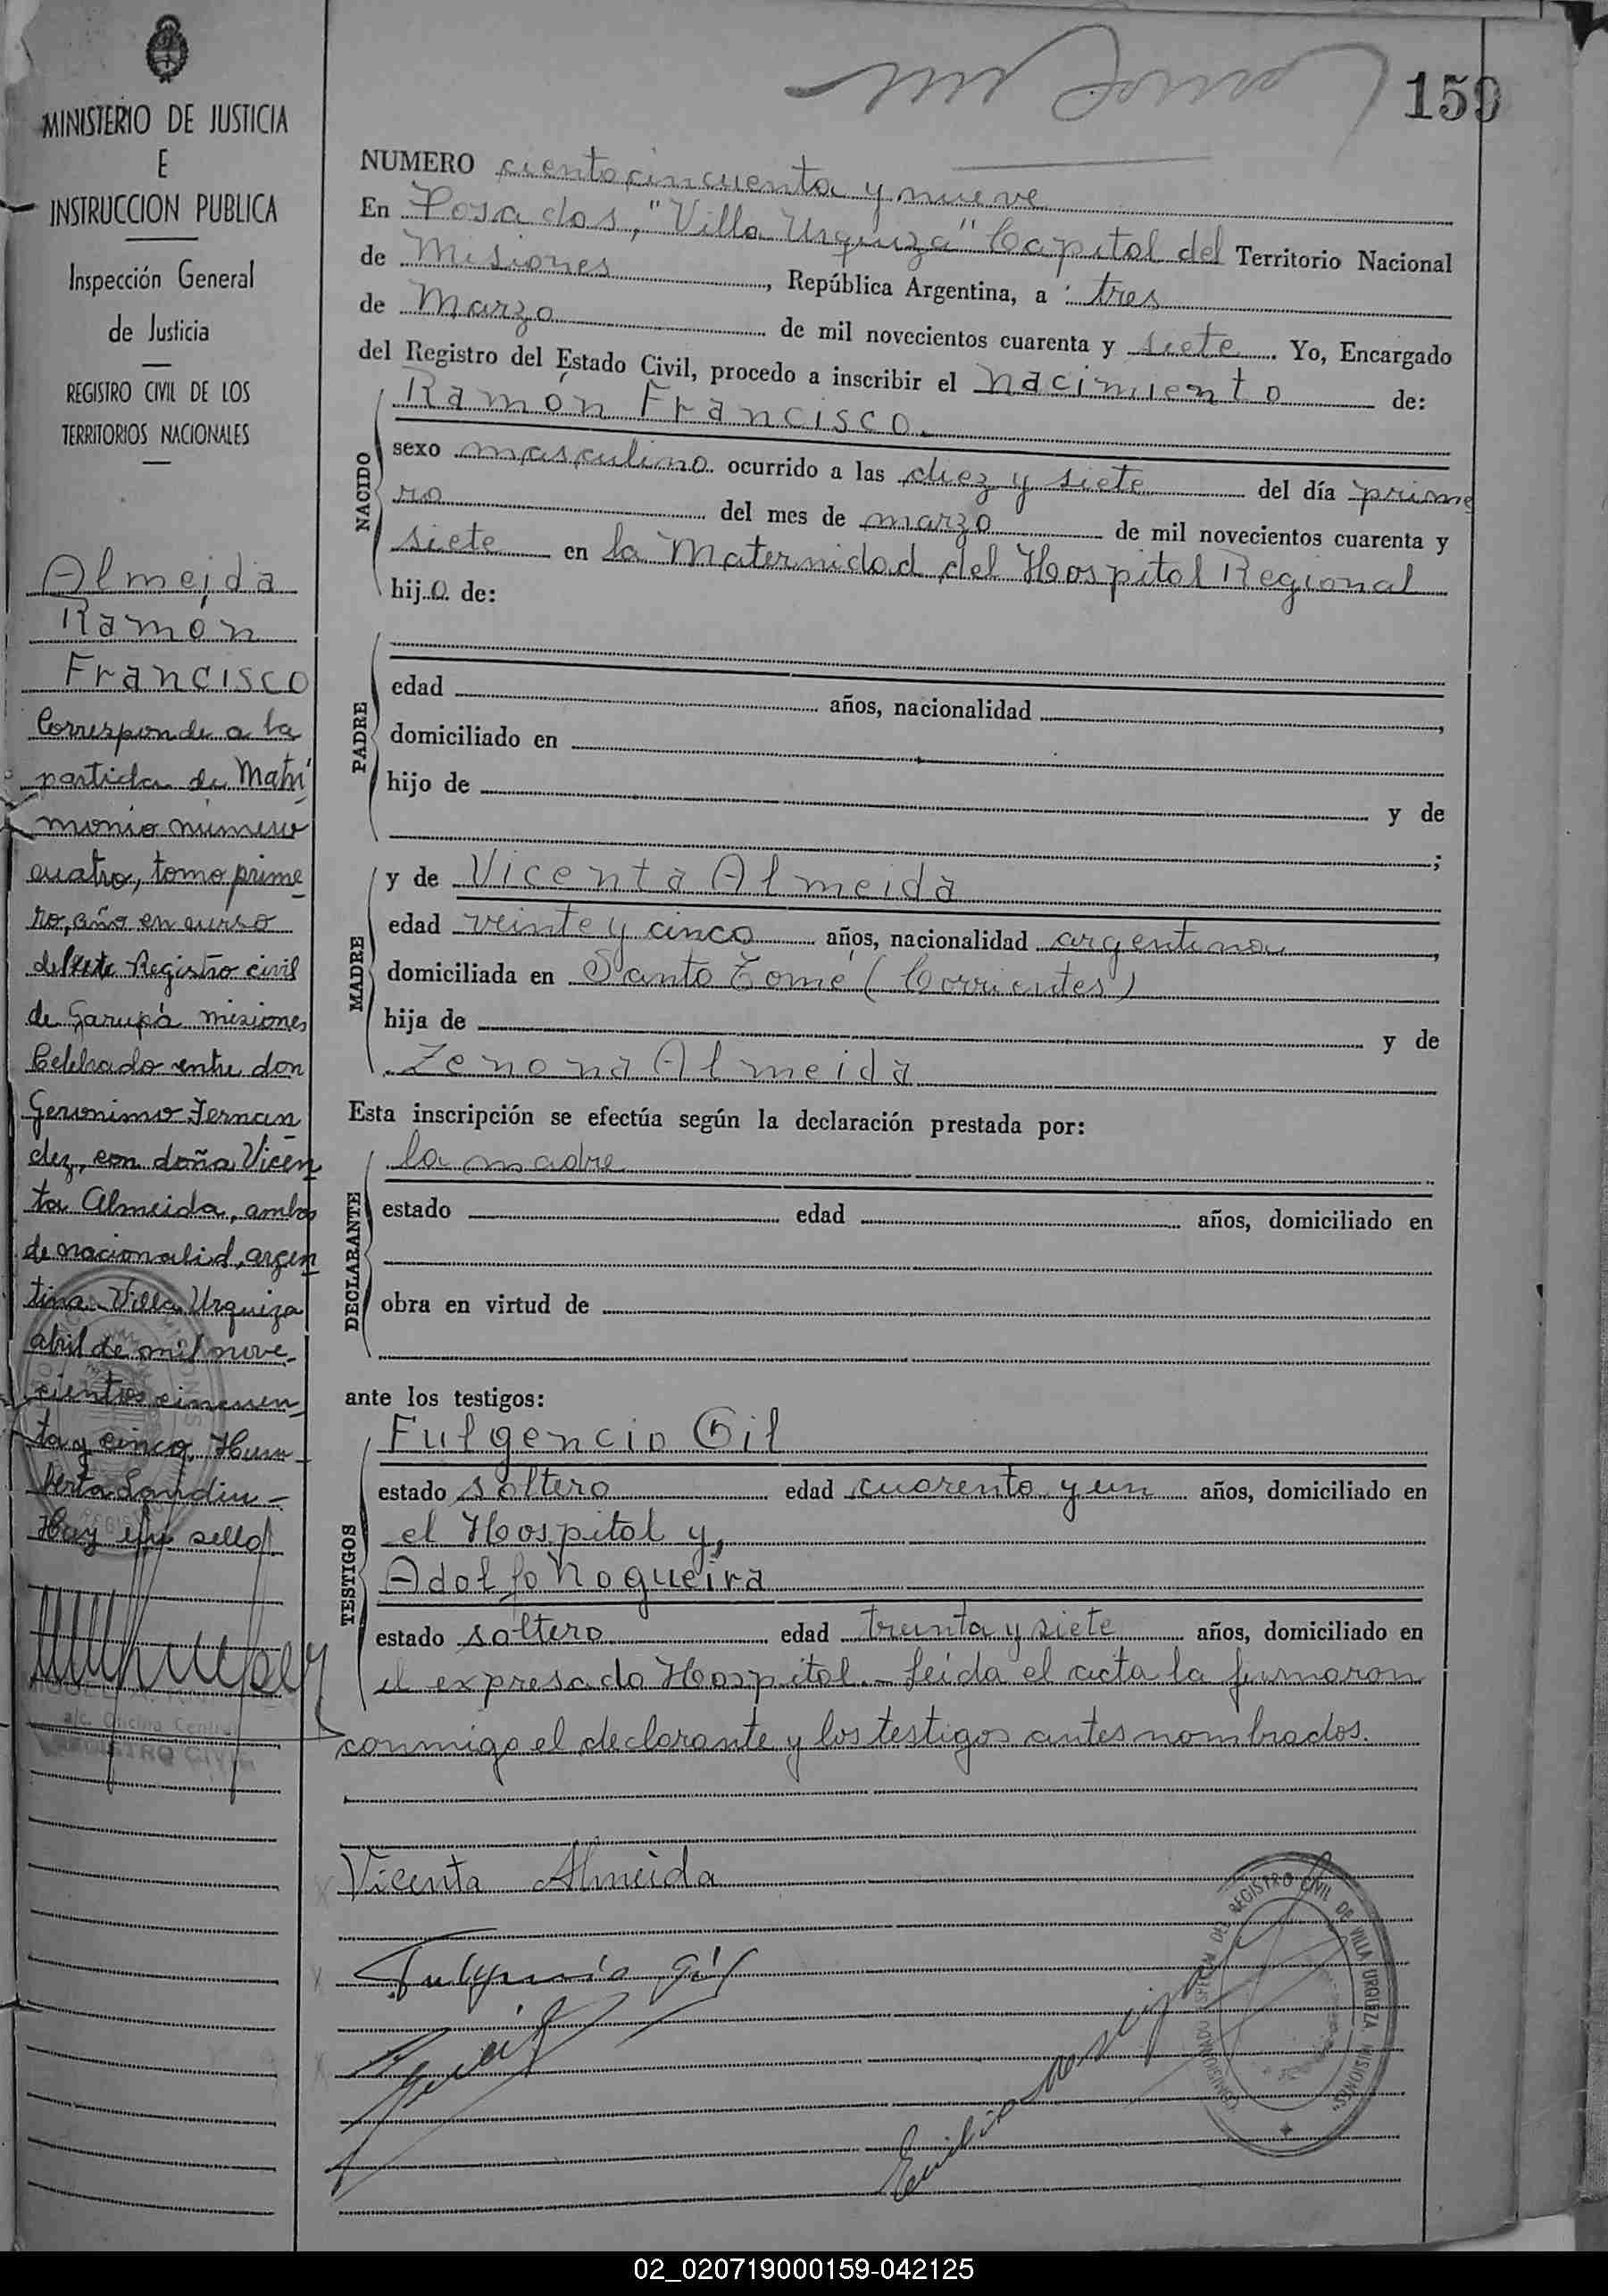 MINISTERIO DE JUSTICIA
E
INSTRUCCION PUBLICA
Inspección General
de Justicia
REGISTRO CIVIL DE LOS
TERRITORIOS NACIONALES
Almeida
Ramón
Francisco
Corresponde a la
partida de Matri
monio número
cuatro, tomo prime
ro, año en curso
del Registro civil
de Garupá misiones
Celebrado entre don
Geronimo Fernan
dez, con doña Vicen
ta Almeida, ambos
de nacionalid. argen
tina. Villa Urquiza
abril de mil nove-
cientos cincuen-
ta y cinco. Hum-
Hay un sello.
a/c. Oficina Central
REGISTRO CIVIL
159
NUMERO ciento cincuenta y nueve
En Posadas, "Villa Urquiza" Capital del Territorio Nacional
de Misiones, República Argentina, a tres
de Marzo de mil novecientos cuarenta y siete. Yo, Encargado
del Registro del Estado Civil, procedo a inscribir el nacimiento de:
NACIDO
Ramón Francisco.
sexo masculino ocurrido a las diez y siete del día prime
ro del mes de marzo de mil novecientos cuarenta y
siete en la Maternidad del Hospital Regional
hijo de:
PADRE
edad años, nacionalidad ,
domiciliado en
hijo de y de
;
MADRE
y de Vicenta Almeida
edad veinte y cinco años, nacionalidad argentina,
domiciliada en Santo Tomé (Corrientes)
hija de y de
Zenona Almeida
Esta inscripción se efectúa según la declaración prestada por:
DECLARANTE
la madre
estado edad años, domiciliado en
obra en virtud de
ante los testigos:
TESTIGOS
Fulgencio Gil
estado soltero edad cuarenta y un años, domiciliado en
el Hospital y,
Adolfo Nogueira
estado soltero edad treinta y siete años, domiciliado en
el expresado Hospital.- Leída el acta la firmaron
conmigo el declarante y los testigos antes nombrados.
Vicenta Almeida
Fulgencio Gil
DEL REGISTRO CIVIL DE VILLA URQUIZA "MISIONES"
02_020719000159-042125